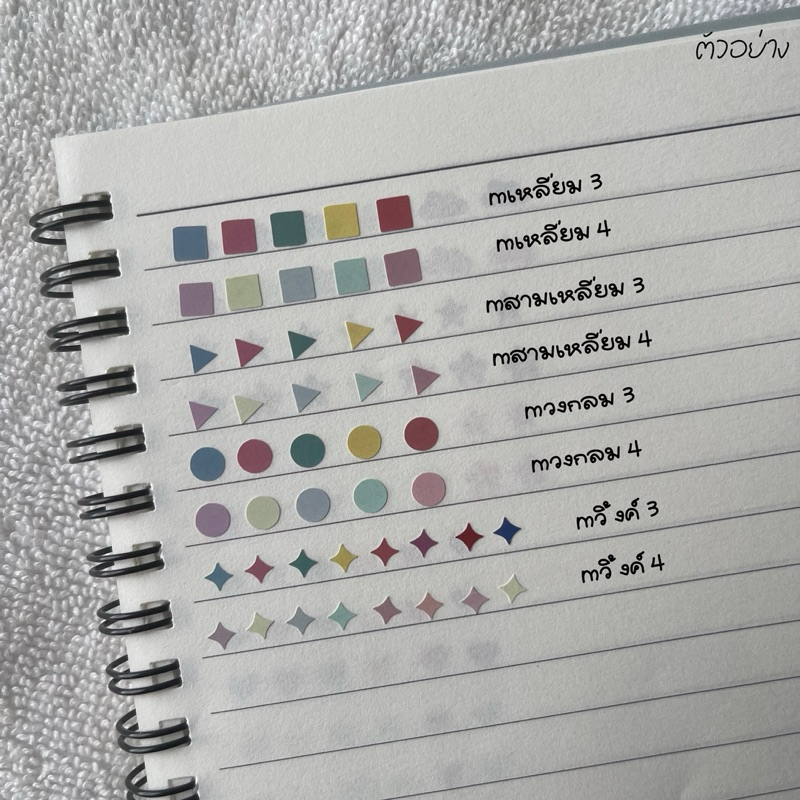 ตัวอย่าง
mเหลี่ยม 3
mเหลี่ยม 4
mสามเหลี่ยม 3
mสามเหลี่ยม 4
mวงกลม 3
mวงกลม 4
mวิ้งค์ 3
mวิ้งค์ 4